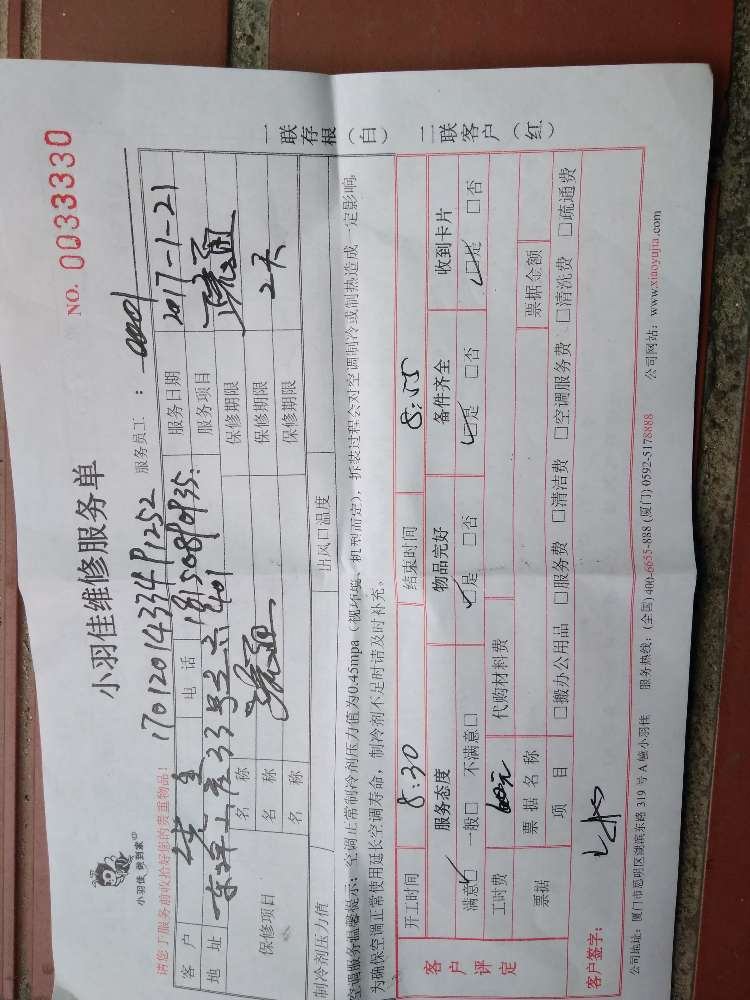 小羽佳 做到家
小羽佳维修服务单
NO. 0033330
请您于服务前收拾好您的贵重物品!
服务员工:
客户 电话 服务日期 2017-1-21
地址 服务项目 疏通
保修项目 名称 疏通 保修期限
名称 保修期限 2天
名称 保修期限
制冷剂压力值 出风口温度
空调服务温馨提示:空调正常制冷剂压力值为0.45mpa(视环境、机型而定),拆装过程会对空调制冷或制热造成一定影响,
为确保空调正常使用延长空调寿命,制冷剂不足时请及时补充。
一联存根(白) 二联客户(红)
客户评定
开工时间 8:30 结束时间 8:55
服务态度 物品完好 备件齐全 收到卡片
满意□ 一般□ 不满意□ □是 □否 □是 □否 □是 □否
工时费 代购材料费
票据 票据名称 票据金额
项目 □搬办公用品 □服务费 □清洁费 □空调服务费 □清洗费 □疏通费
客户签字:
公司地址:厦门市思明区湖滨东路 319 号 A 幢小羽佳 服务热线:(全国)400-6655-888 (厦门) 0592-5178888 公司网站:www.xiaoyujia.com